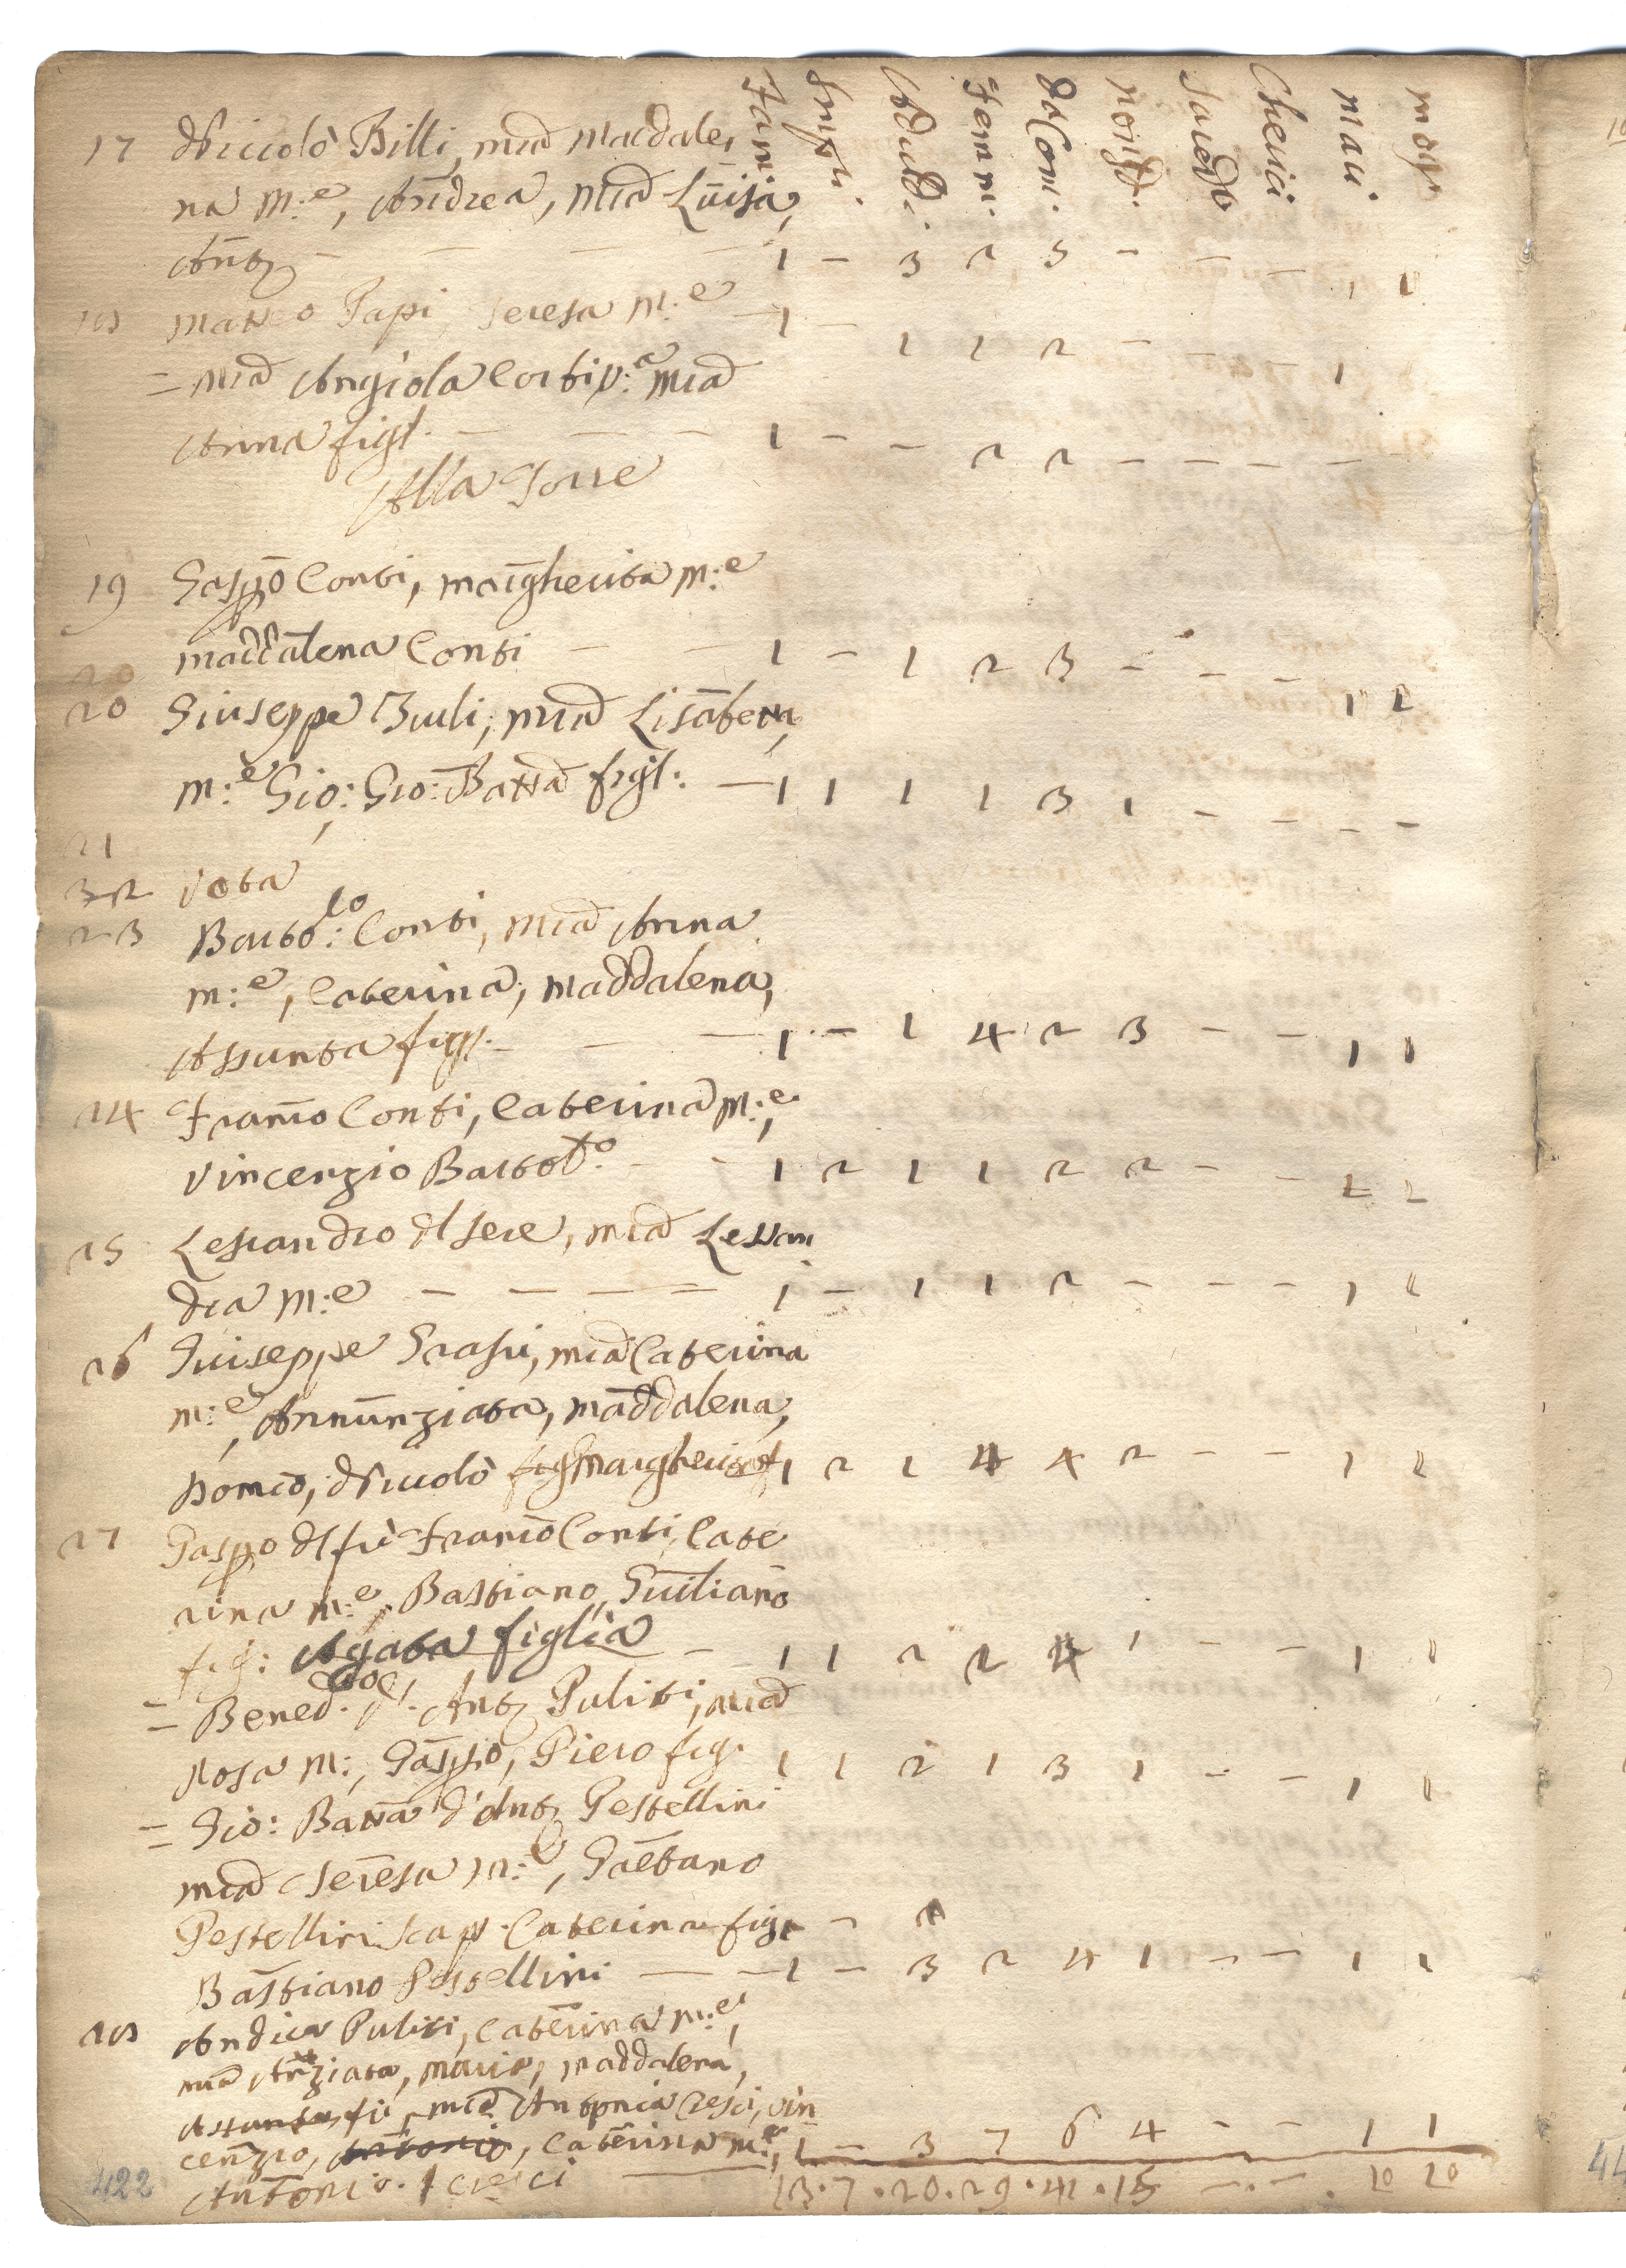 Fam. Impu. Adulti. Femm. da Com. non d. Sacerdo Cherici mari. mog.
17 Niccolò Billi, Mia Madale,
na m:e, Andrea, Mia Luisa,
Anto – – – – 1 – 3 2 5 – – – 1 1
18 Matteo Papi, Teresa m:e – 1 – 1 1 2 – – – 1
= Mia Angiola Corti v:a Mia
Anna figl. – – – 1 – – 2 2 – – – –
Alla Torre
19 Gasppo Conti, Margherita m:e
Maddalena Conti – – 1 – 1 2 3 – – – 1 1
20
20 Giuseppe Buli, Mia Lisabetta,
m:e Gio: Gio: Batta figl: – 1 1 1 1 3 1 – – – –
21
32 Vota
23 Barto:lo Conti, Mia Anna
m:e, Caterina, Maddalena,
Assunta figl. – – – 1 – 1 4 2 3 – – 1 1
24 Franco Conti, Caterina m:e,
Vincenzio Bartolo. – – 1 2 1 1 2 2 – – 1 1
25 Lessandro del Sere, Mia Lessan
dra m:e – – – = 1 – 1 1 2 – – – 1 1
26 Giuseppe Grassi, Mia Caterina
m:e, Annunziata, Maddalena,
Domco, Niccolò Margherita 1 2 1 4 4 2 – – 1 1
27 Gasppo del fù Franco Conti, Cate
rina m:e, Bastiano, Giuliano
fig: Agata figlia – 1 1 2 2 4 1 – – 1 1
= Bened. Anto Puliti, Mia
Rosa m:, Gasppo, Piero fig. 1 1 2 1 3 1 – – 1 1
= Gio: Batta d'Anto Pestellini
Mia Teresa m:e, Gaetano
Pestellini scap. Caterina fig.
Bastiano Pestellini – – 1 – 3 2 4 1 – – 1 1
28 Andrea Puliti, Caterina m:e,
Mia Anziata, Maria, Maddalena,
Assunta fi, Mia Antonia Cresci, Vin
cenzio, Antonio, Caterina m:e, 1 – 3 7 6 4 – – 1 1
Antonio Cresci – 13 . 7 . 20 . 29 . 41 . 15 – . – . 10 10
422